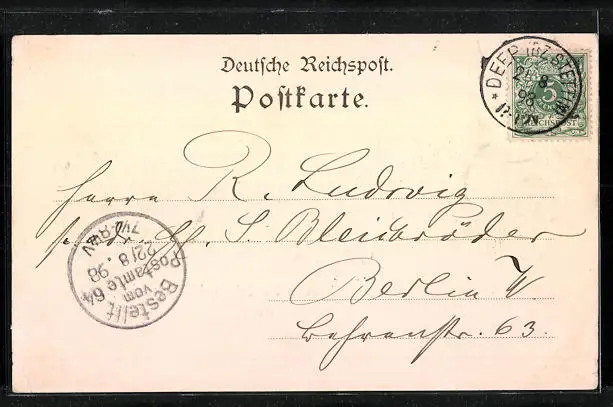 Deutsche Reichspost.
Postkarte.
DEEP (BZ. STETTIN)
21 8
98
5
REICHSPOST
Herrn R. Ludwig
S. Bleichröder
Berlin W
Behrenstr. 63.
Bestellt
vom
Postamte 64
22/8.98
7½-8¾V